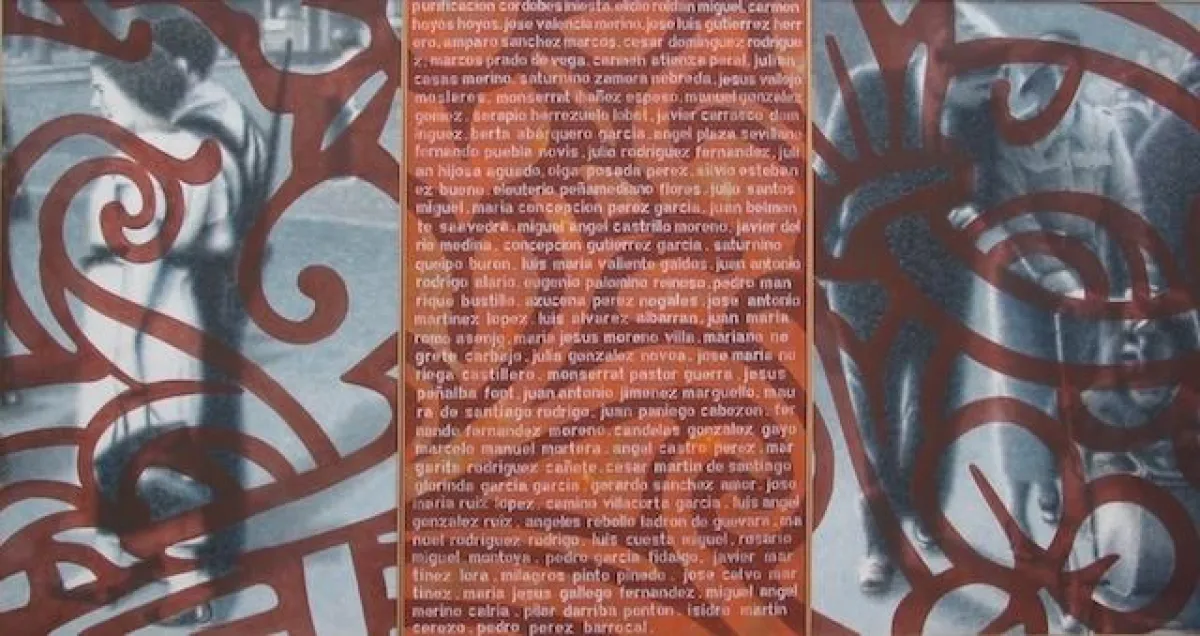 purificacion cordobes iniesta. elicio roldan miguel. carmen
hoyos hoyos. jose valencia merino. jose luis gutierrez herr
ero. amparo sanchez marcos. cesar dominguez rodrigue
z. marcos prado de vega. carmen atienza peral. julian
casas merino. saturnino zamora nebreda. jesus vallejo
mosleres. monserrat ibañez esposo. manuel gonzalez
gomez. serapio herrezuelo lobel. javier carrasco dom
inguez. berta abarquero garcia. angel plaza sevillano
fernando puebla novis. julio rodriguez fernandez. juli
an hijosa aguado. olga posada perez. silvio esteban
ez bueno. eleuterio peñamediano flores. julio santos
miguel. maria concepcion perez garcia. juan belmon
te saavedra. miguel angel castrillo moreno. javier del
rio medina. concepcion gutierrez garcia. saturnino
queipo buron. luis maria valiente galdos. juan antonio
rodrigo alario. eugenio palomino reinoso. pedro man
rique bustillo. azucena perez nogales. jose antonio
martinez lopez. luis alvarez albarran. juan maria
romo asenjo. maria jesus moreno villa. mariano ne
grete carbajo. julia gonzalez novoa. jose maria no
riega castillero. monserrat pastor guerra. jesus
peñalba font. juan antonio jimenez marguello. mau
ra de santiago rodrigo. juan paniego cabezon. fer
nando fernandez moreno. candelas gonzalez gayo
marcelo manuel mortera. angel castro perez. mar
garita rodriguez cañete. cesar martin de santiago
glorinda garcia garcia. gerardo sanchez amor. jose
maria ruiz lopez. camino villacorta garcia. luis angel
gonzalez ruiz. angeles rebollo ladron de guevara. ma
nuel rodriguez rodrigo. luis cuesta miguel. rosario
miguel montoya. pedro garcia fidalgo. javier mar
tinez lora. milagros pinto pinado. jose calvo mar
tinez. maria jesus gallego fernandez. miguel angel
merino calria. pilar darriba ponton. isidro martin
cerezo. pedro perez barrocal.